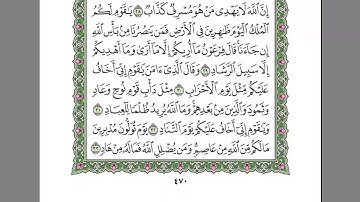 إِنَّ ٱللَّهَ لَا يَهْدِى مَنْ هُوَ مُسْرِفٌ كَذَّابٌ ٢٨ يَٰقَوْمِ لَكُمُ
ٱلْمُلْكُ ٱلْيَوْمَ ظَٰهِرِينَ فِى ٱلْأَرْضِ فَمَن يَنصُرُنَا مِنۢ بَأْسِ ٱللَّهِ
إِن جَآءَنَا قَالَ فِرْعَوْنُ مَآ أُرِيكُمْ إِلَّا مَآ أَرَىٰ وَمَآ أَهْدِيكُمْ
إِلَّا سَبِيلَ ٱلرَّشَادِ ٢٩ وَقَالَ ٱلَّذِىٓ ءَامَنَ يَٰقَوْمِ إِنِّىٓ أَخَافُ
عَلَيْكُم مِّثْلَ يَوْمِ ٱلْأَحْزَابِ ٣٠ مِثْلَ دَأْبِ قَوْمِ نُوحٍ وَعَادٍ
وَثَمُودَ وَٱلَّذِينَ مِنۢ بَعْدِهِمْ وَمَا ٱللَّهُ يُرِيدُ ظُلْمًا لِّلْعِبَادِ ٣١
وَيَٰقَوْمِ إِنِّىٓ أَخَافُ عَلَيْكُمْ يَوْمَ ٱلتَّنَادِ ٣٢ يَوْمَ تُوَلُّونَ مُدْبِرِينَ
مَا لَكُم مِّنَ ٱللَّهِ مِنْ عَاصِمٍ وَمَن يُضْلِلِ ٱللَّهُ فَمَا لَهُۥ مِنْ هَادٍ ٣٣
٤٧٠